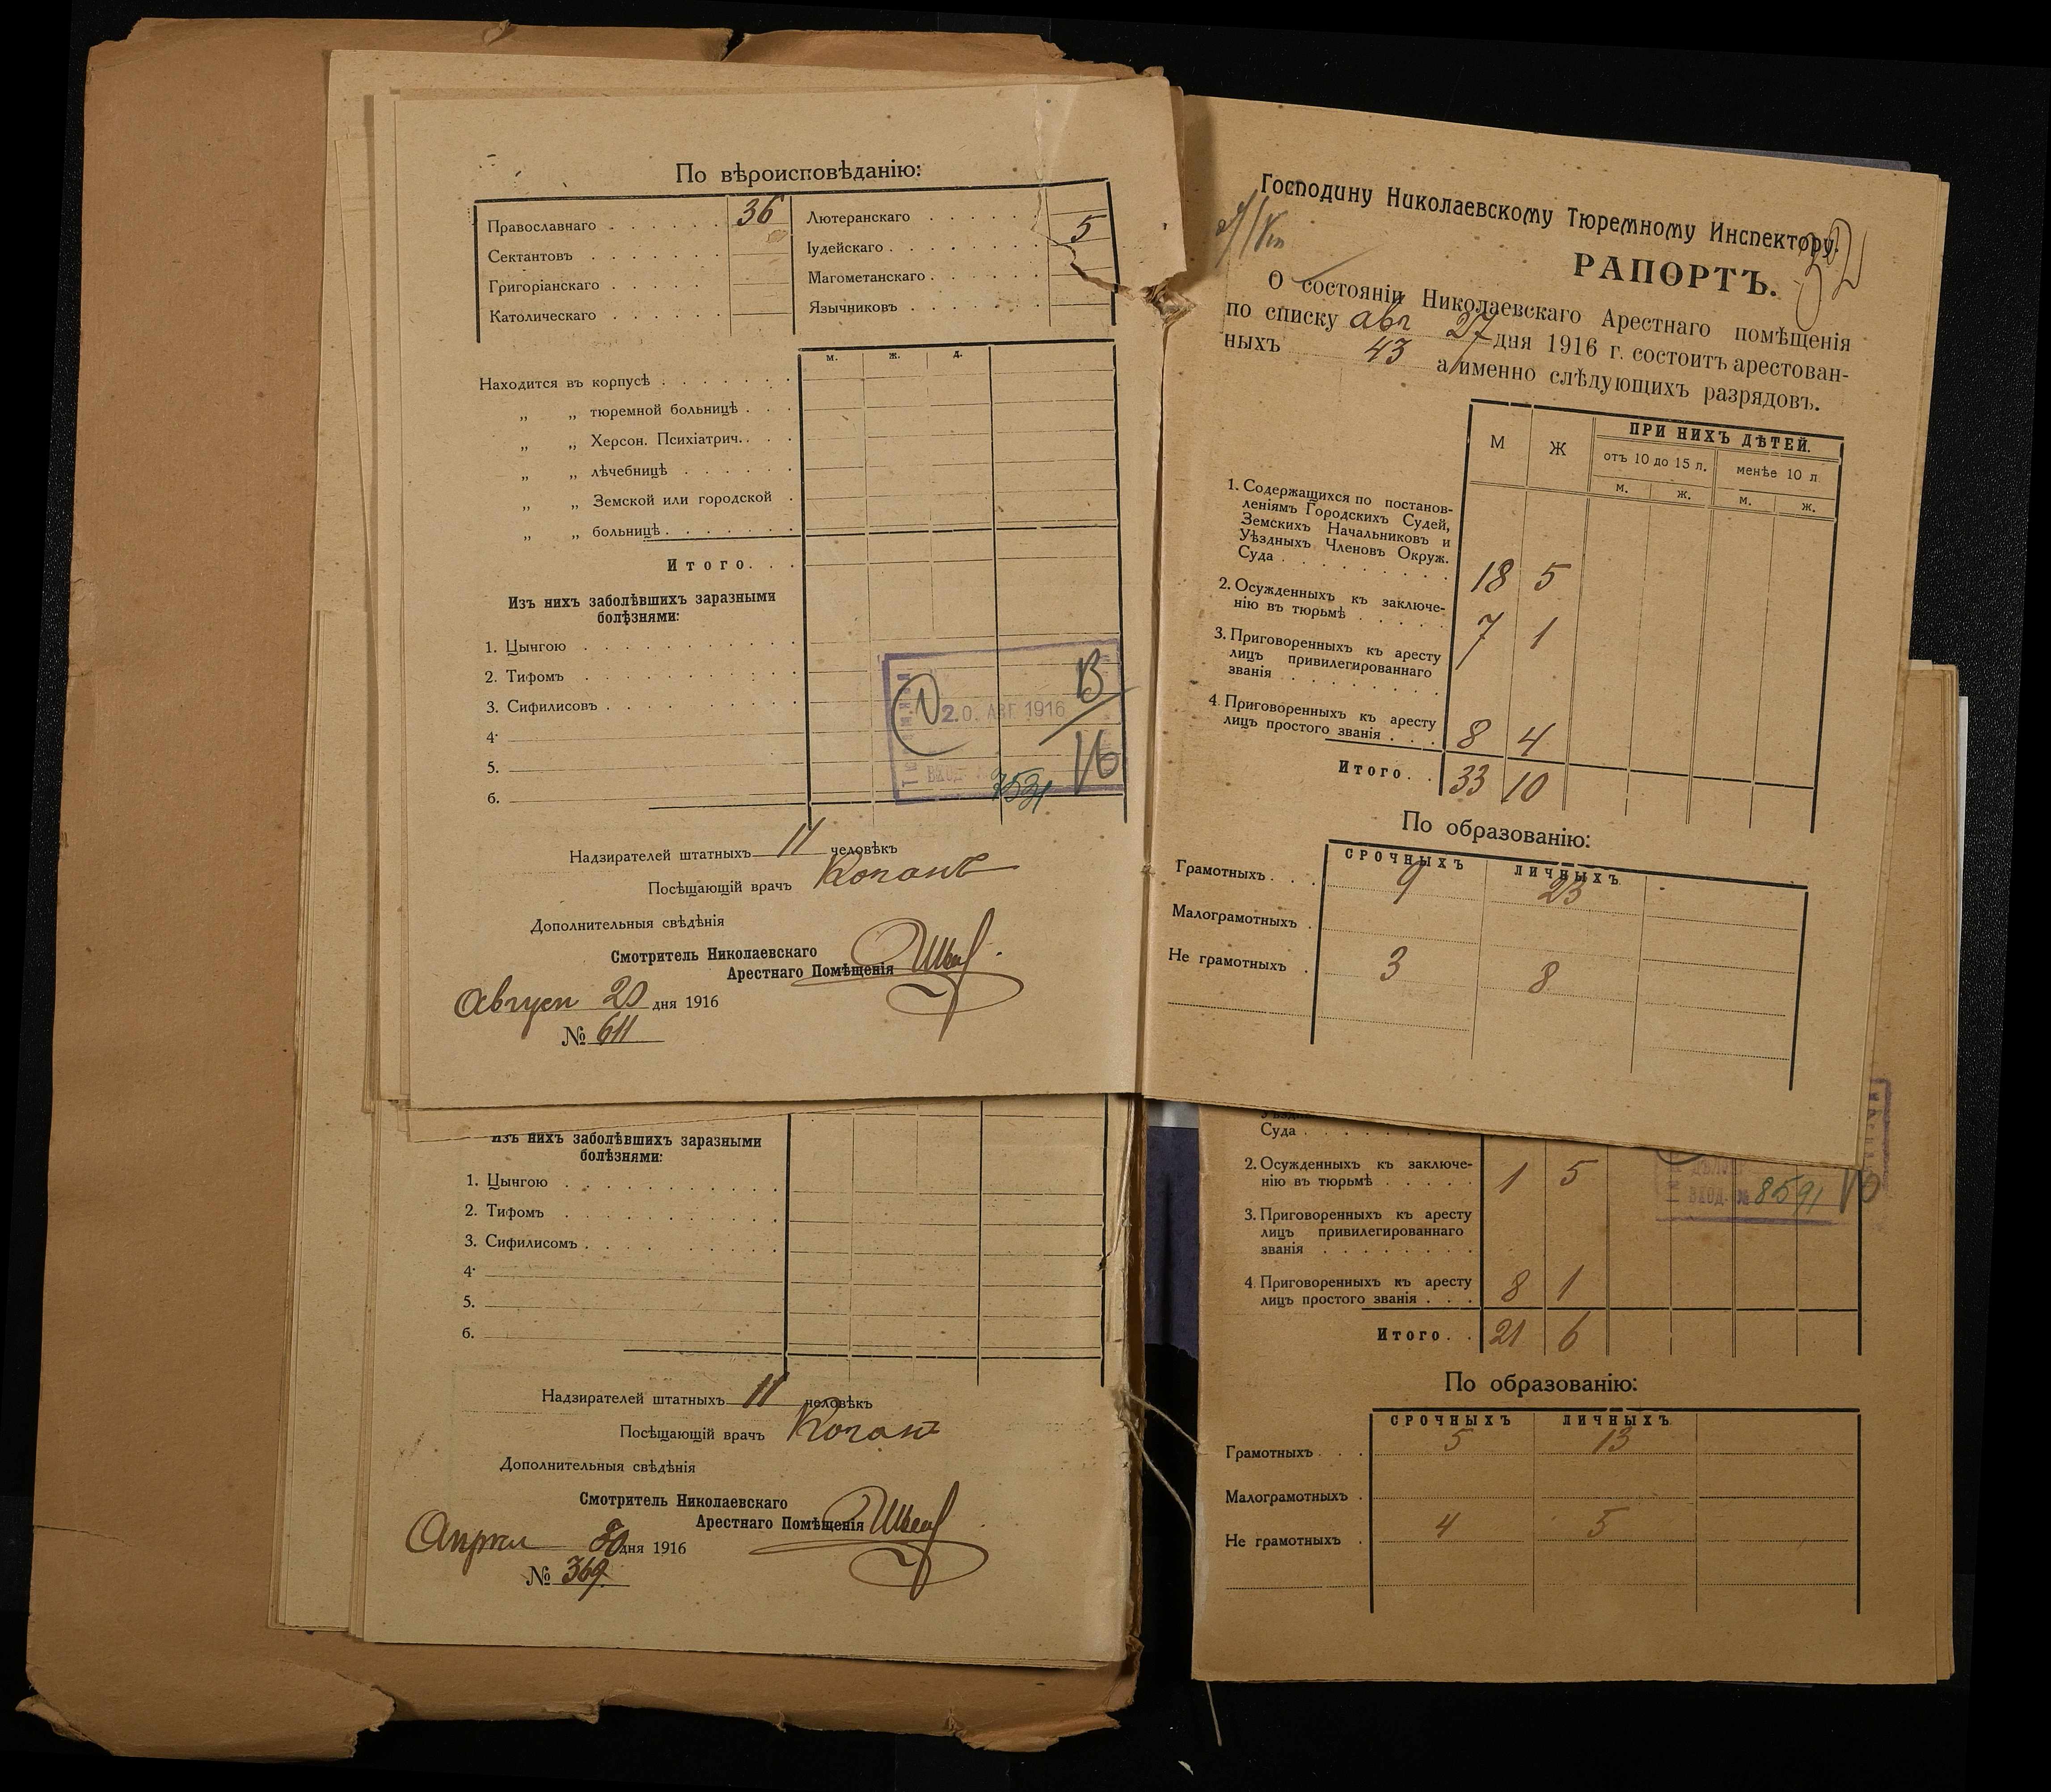 По вѣроисповѣданію:
Православнаго . . . . . . 36 Лютеранскаго . . . . .
Сектантовъ . . . . . . . Іудейскаго . . . . . . . . 5
Григоріанскаго . . . . . Магометанскаго . . . . . .
Католическаго . . . . . . Язычниковъ . . . . . . .
м. ж. д.
Находится въ корпусѣ . . . . . . .
„ „ тюремной больницѣ . . .
„ „ Херсон. Психіатрич. . . .
„ „ лѣчебницѣ . . . . . .
„ „ Земской или городской .
„ „ больницѣ . . . . . . .
Итого. . .
Изъ нихъ заболѣвшихъ заразными
болѣзнями:
1. Цынгою . . . . . . . . . . .
2. Тифомъ . . . . . . . . . . .
3. Сифилисовъ . . . . . . . . . .
4.
5.
6.
20. АВГ 1916
ВХОД. №
Надзирателей штатныхъ 11 человѣкъ
Посѣщающій врачъ Коганъ
Дополнительныя свѣдѣнія
Смотритель Николаевскаго
Арестнаго Помѣщенія
Август 20 дня 1916
№ 611
Изъ нихъ заболѣвшихъ заразными
болѣзнями:
1. Цынгою . . . . . . . . . . .
2. Тифомъ . . . . . . . . . . .
3. Сифилисомъ . . . . . . . . . .
4.
5.
6.
Надзирателей штатныхъ 11 человѣкъ
Посѣщающій врачъ Коганъ
Дополнительныя свѣдѣнія
Смотритель Николаевскаго
Арестнаго Помѣщенія
Апрел дня 1916
№ 369
Господину Николаевскому Тюремному Инспектору.
РАПОРТЪ.
О состояніи Николаевскаго Арестнаго помѣщенія
по списку авг 27 дня 1916 г. состоитъ арестован-
ныхъ 43 а именно слѣдующихъ разрядовъ.
М Ж ПРИ НИХЪ ДѢТЕЙ.
отъ 10 до 15 л. менѣе 10 л
м. ж. м. ж.
1. Содержащихся по постанов-
леніямъ Городскихъ Судей,
Земскихъ Начальниковъ и
Уѣздныхъ Членовъ Окруж.
Суда . . . . . . . . . . 18 5
2. Осужденныхъ къ заключе-
нію въ тюрьмѣ . . . . . 7 1
3. Приговоренныхъ къ аресту
лицъ привилегированнаго
званія . . . . . . . . .
4. Приговоренныхъ къ аресту
лицъ простого званія . . . 8 4
Итого. . 33 10
По образованію:
СРОЧНЫХЪ ЛИЧНЫХЪ
Грамотныхъ . . . 9 23
Малограмотныхъ .
Не грамотныхъ . 3 8
Суда . . . . . . . . .
2. Осужденныхъ къ заключе-
нію въ тюрьмѣ . . . . . 1 5
ВХОД. № 8591
3. Приговоренныхъ къ аресту
лицъ привилегированнаго
званія . . . . . . . .
4. Приговоренныхъ къ аресту
лицъ простого званія . . . 8 1
Итого. . 21 6
По образованію:
СРОЧНЫХЪ ЛИЧНЫХЪ
Грамотныхъ . . . 5 13
Малограмотныхъ .
Не грамотныхъ . 4 5